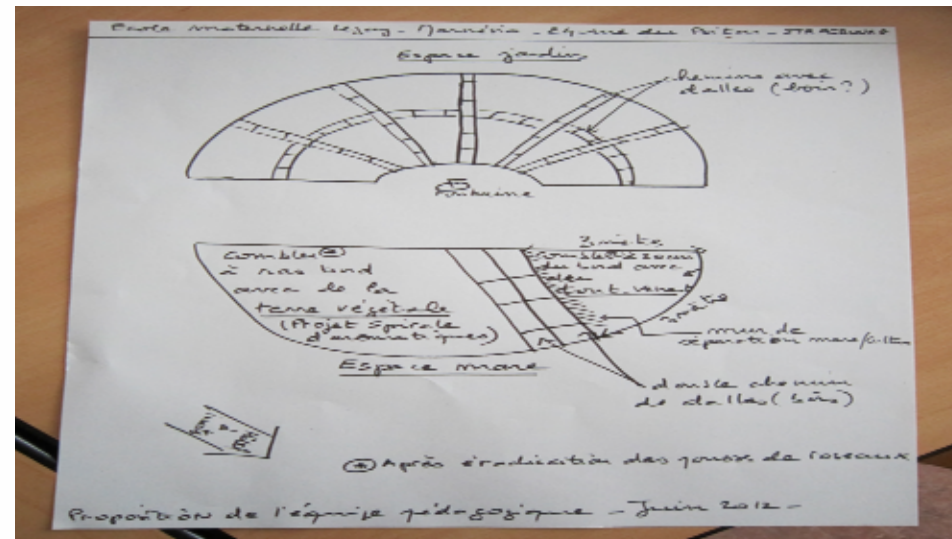 Ecole maternelle Lezay - Marnésia - - STRASBOURG
Espace jardin
chemins avec
dalles (bois?)
Fontaine
combler (*)
à ras bord
avec de la
terre végétale
(Projet spirale
d'aromatiques)
du bord avec
mur de
séparation mare/
Espace mare
double chemin
de dalles (bois)
(*) Après éradication des pousses de roseaux
Proposition de l'équipe pédagogique - Juin 2012 -